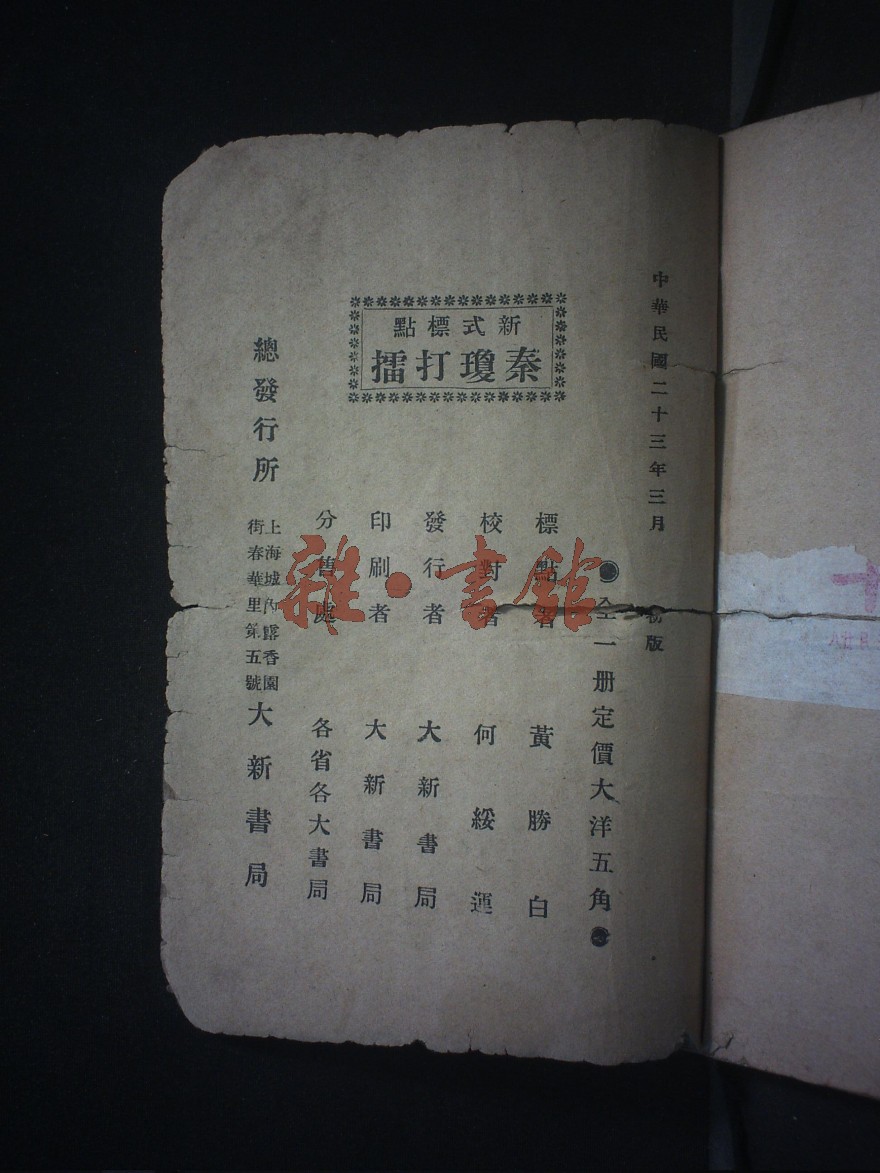 中華民國二十三年三月初版
新式標點
秦瓊打擂
全一册定價大洋五角
標點者 黃勝白
校對者 何綏運
發行者 大新書局
印刷者 大新書局
分售處 各省各大書局
總發行所 上海城內露香園街春華里第五號 大新書局
雜·書館